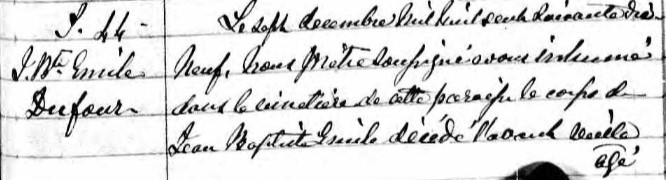 S. 44
J. Bte Emile
Dufour
Le sept decembre mil huit cent soixante dix
neuf, nous prêtre soussigné avons inhumé
dans le cimetière de cette paroisse le corps de
Jean Baptiste Emile décédé l'avant veille
agé